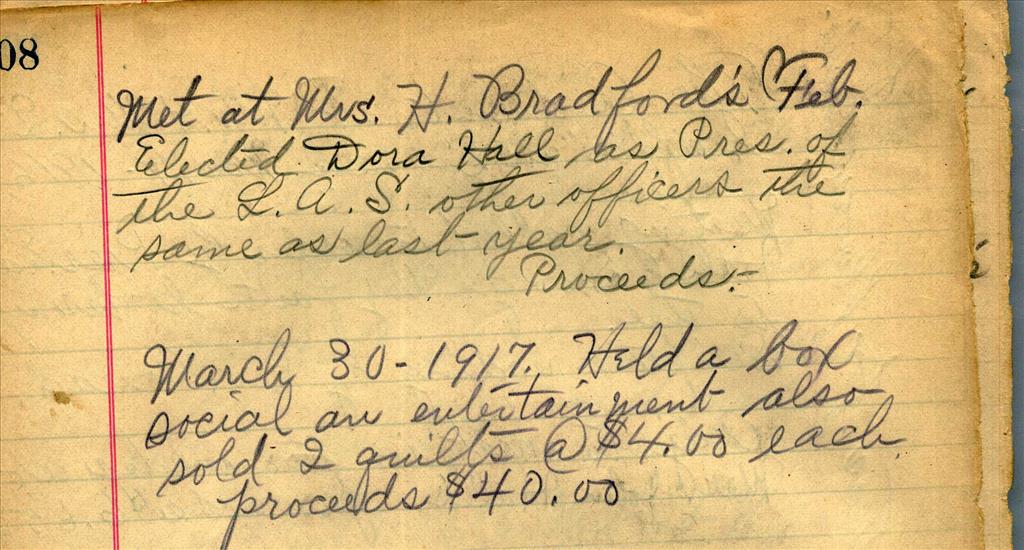 08
Met at Mrs. H. Bradford's Feb.
Elected Dora Hall as Pres. of
the L.A.S. other officers the
same as last year.
Proceeds:-
March 30-1917. Held a box
social an entertainment also
sold 2 quilts @ $4.00 each
proceeds $40.00